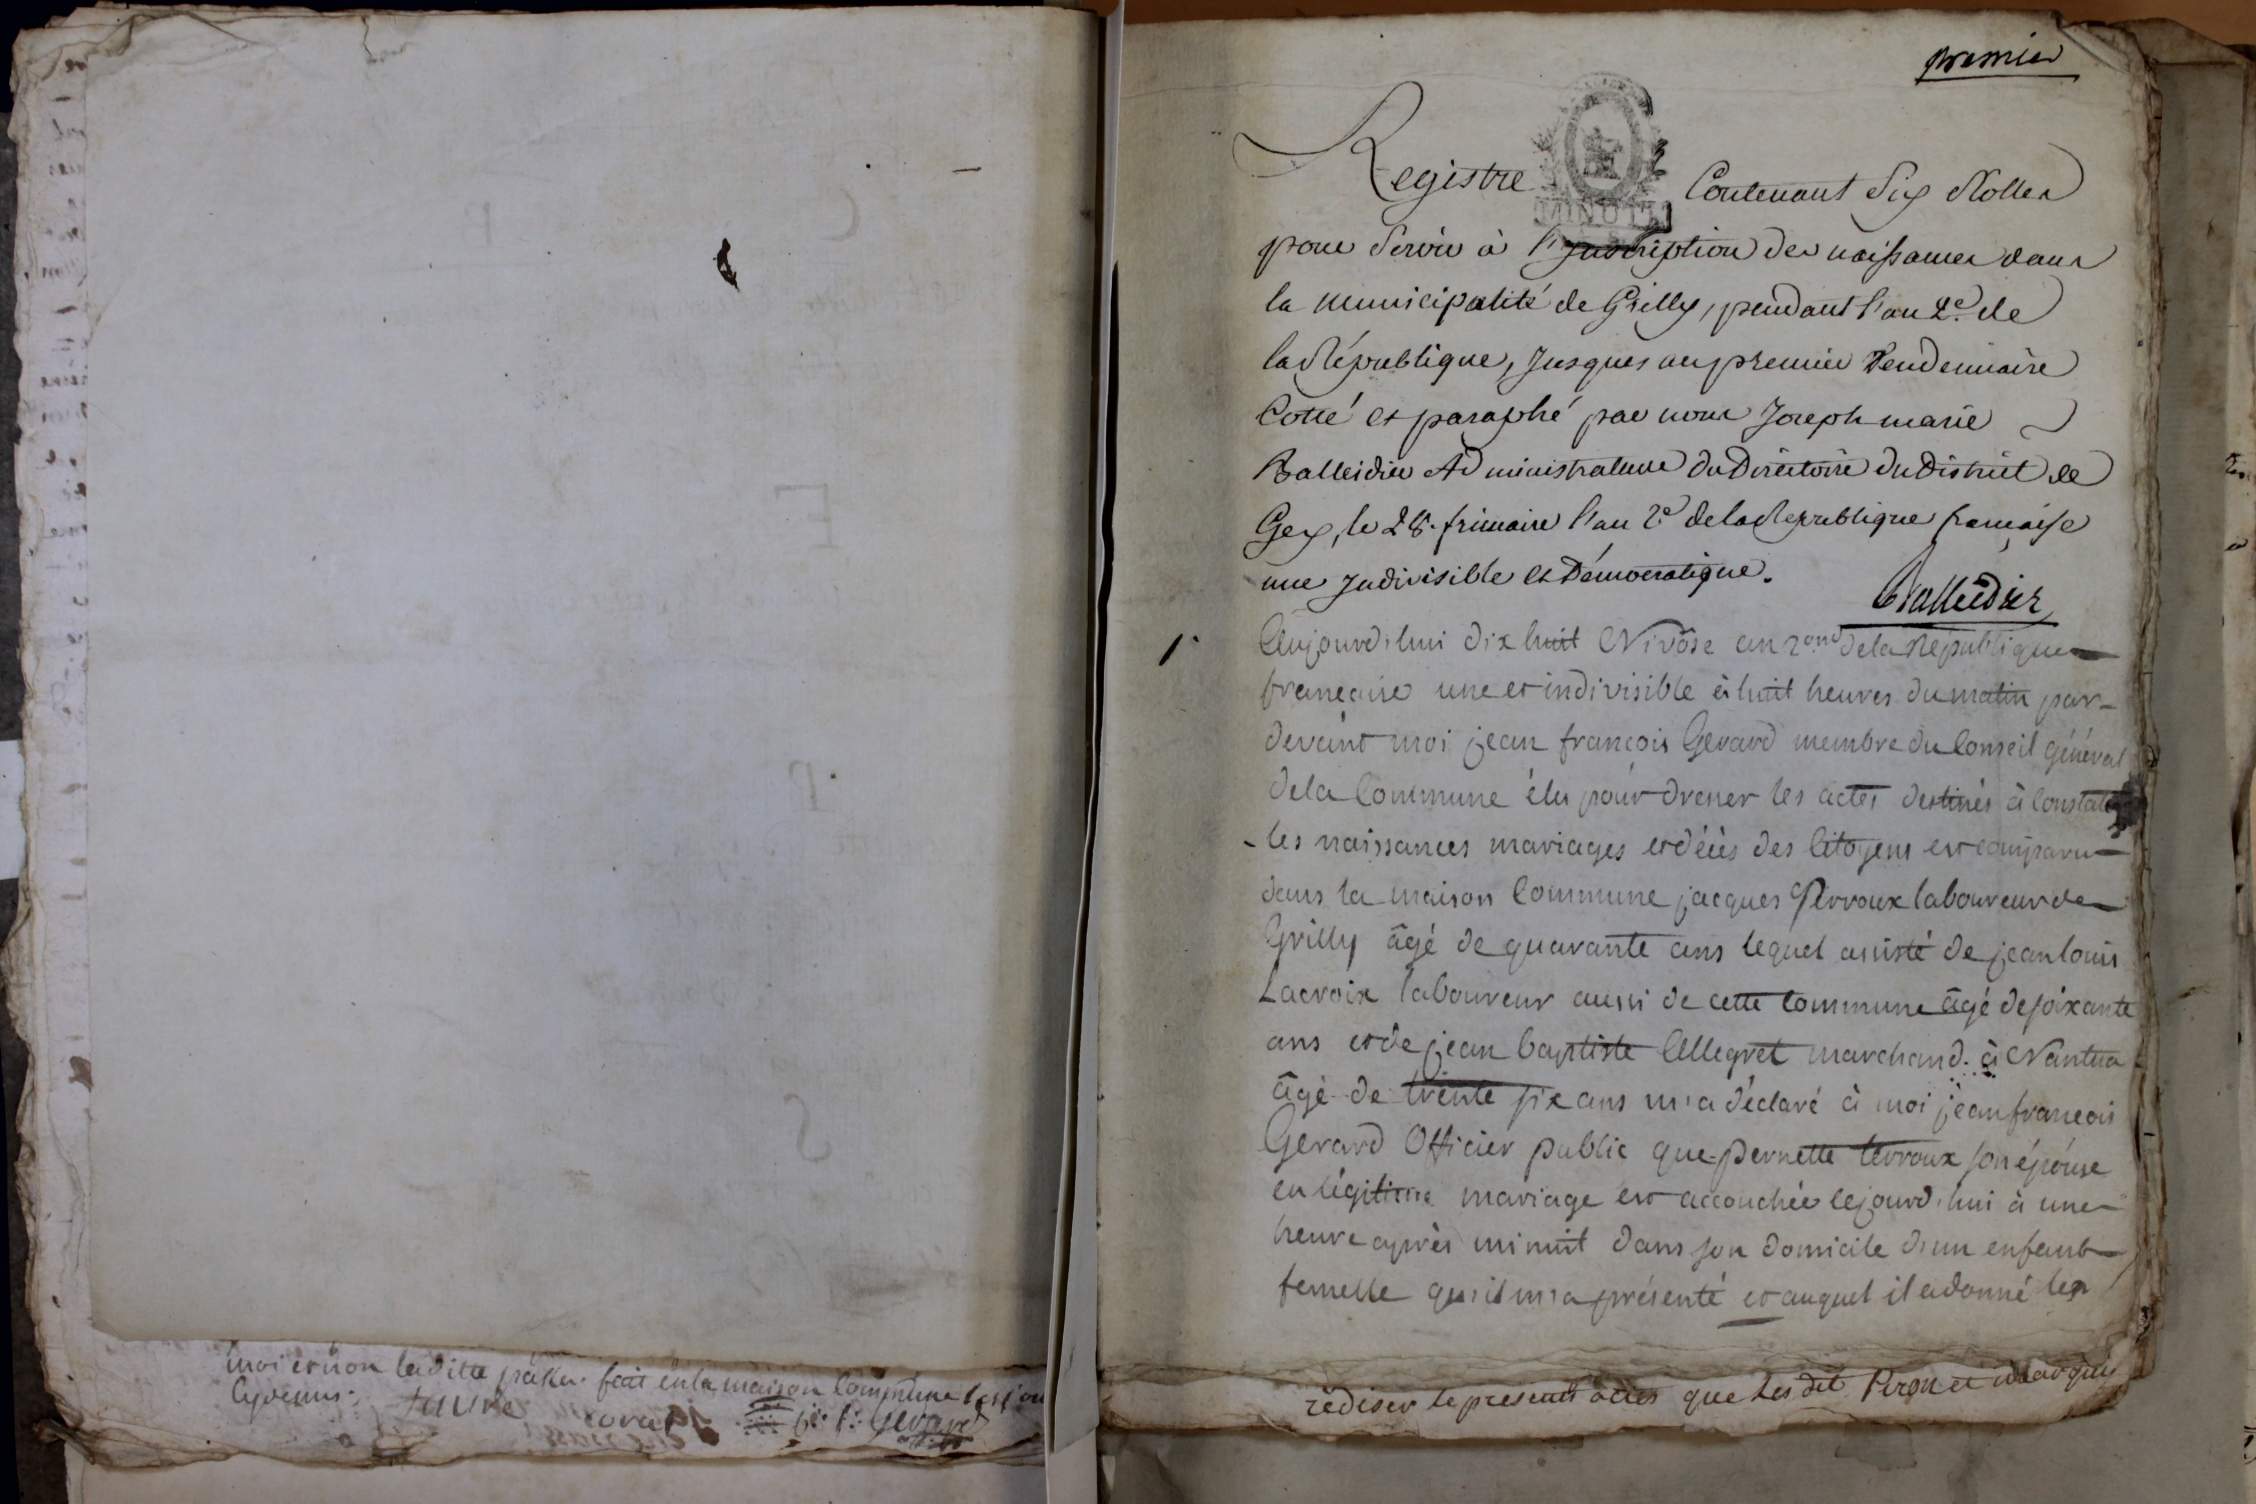 moi et non laditte praller. fait en la maison Commune les jour
cydessus.
favre
coral
j: f: Gerard
premier
MINUTE
Registre Contenant Six Rolles
pour Servir à l'Inscription des naissances dans
la municipalité de Grilly, pendant l'an 2e. de
la République, Jusques au premier Vendemiaire
Cotté et paraphé par nous Joseph marie
Balleidier Administrateur du Directoire du District de
Gex, le 28. frimaire l'an 2e de la Republique françaisse
une Indivisible et Démocratique.
Balleidier
1. Aujourd'hui dix huit Nivôse an 2ond de la République
francaise une et indivisible à huit heures du matin par-
devant moi jean françois Gerard membre du Conseil général
de la Commune élu pour dresser les actes destinés à Constater
les naissances mariages et décès des Citoyens est comparu
dans la maison Commune jacques Perroux laboureur de
Grilly âgé de quarante ans lequel assisté de jean louis
Lacroix laboureur aussi de cette Commune âgé de soixante
ans et de jean baptiste Allegret marchand à Nantua
âgé de trente six ans m'a déclaré à moi jean francois
Gerard Officier public que pernette terroux son épouse
en légitime mariage est accouchée cejourd'hui à une
heure après minuit dans son domicile d'un enfant
femelle qu'il m'a présenté et auquel il a donné les
rediser le present actes que Les dit Peron et Marquis